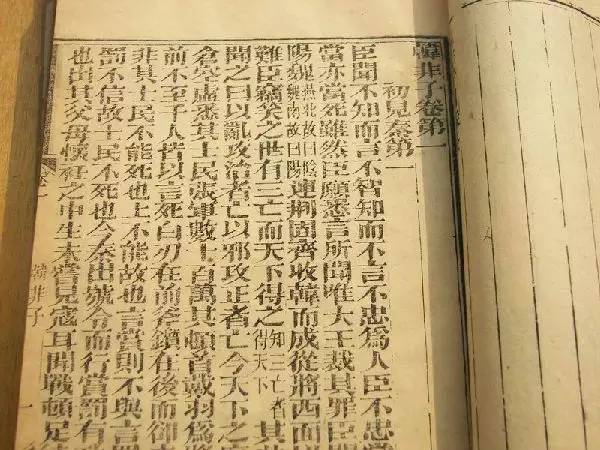 韓非子卷第一
初見秦第一
臣聞不知而言不智知而不言不忠爲人臣不忠
當亦當死雖然臣願悉言所聞唯大王裁其罪臣聞
陽魏燕北故曰陰魏南故曰陽連荆固齊收韓而成從將西面
難臣竊笑之世有三亡而天下得之知三亡者得天下其
聞之曰以亂攻治者亡以邪攻正者亡今天下之
倉空虛悉其士民張軍數十百萬其頓首戴羽爲將
前不至千人皆以言死白刃在前斧鑕在後而卻
非其士民不能死也上不能故也言賞則不與言
罰不信故士民不死也今秦出號令而行賞罰有
也出其父母懷衽之中生未嘗見寇耳聞戰頓足
韓非子
一